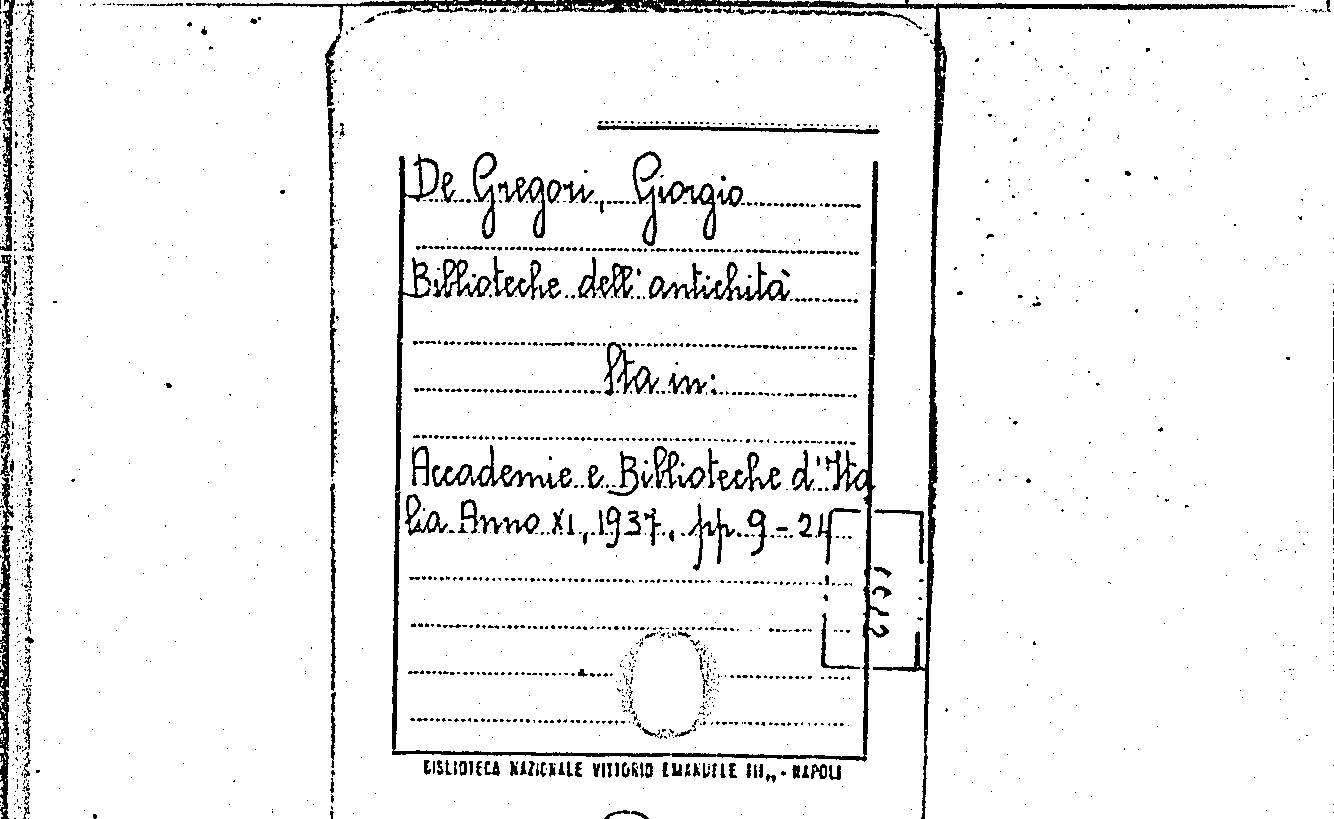 De Gregori, Giorgio
Biblioteche dell'antichità
Sta in:
Accademie e Biblioteche d'Ita
lia Anno XI, 1937, pp. 9-24
BIBLIOTECA NAZIONALE VITTORIO EMANUELE III„ - NAPOLI